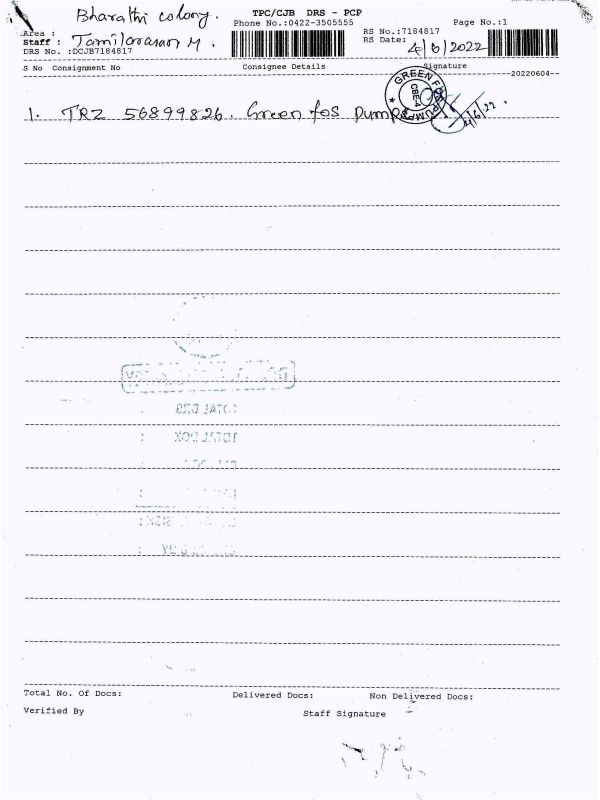 Bharathi colony.
TPC/CJB DRS - PCP
Phone No.:0422-3505555
Page No.:1
Area :
Staff : Tamilarasan M.
DRS No. :DCJB7184817
RS No.:7184817
RS Date: 4/6/2022
S No Consignment No Consignee Details Signature
20220604
1. TRZ 56899826. Green fos Pumps
GREEN FOS PUMPS
CBE-4
4/6/22.
TOTAL DRS :
TOTAL DOX :
Total No. Of Docs: Delivered Docs: Non Delivered Docs:
Verified By Staff Signature